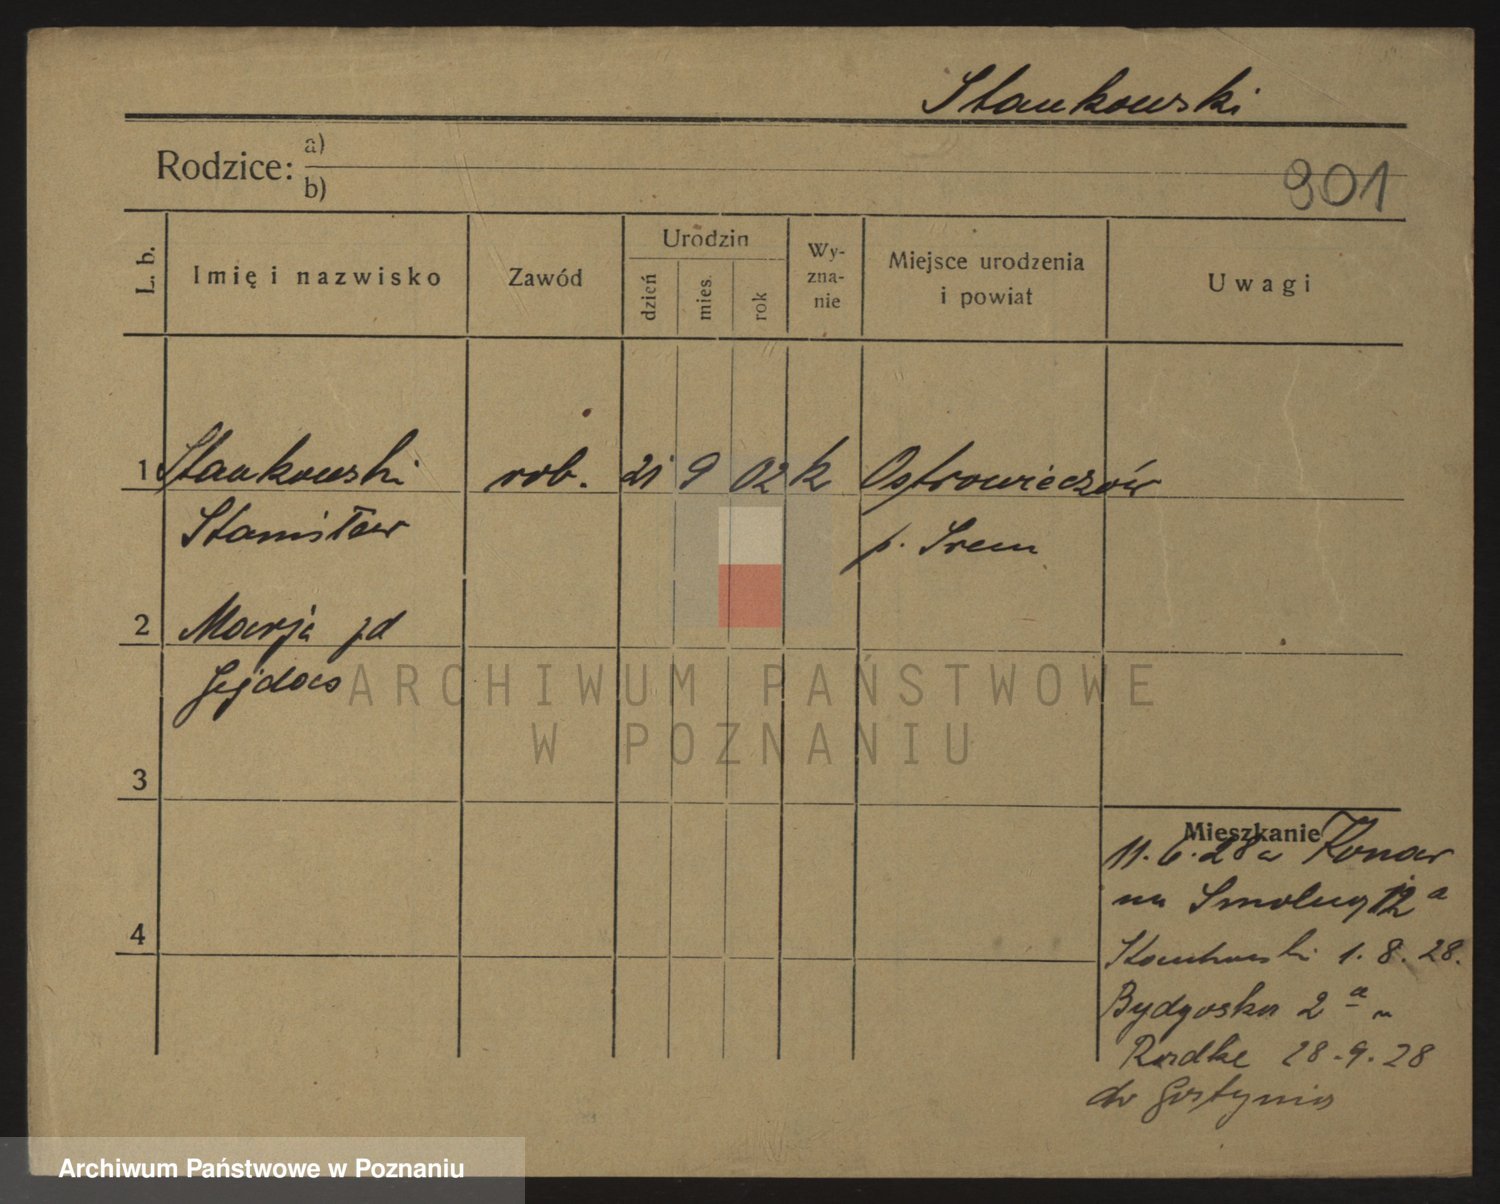 Stankowski
Rodzice: a)
b)
901
L. b.
Imię i nazwisko
Zawód
Urodzin
dzień
mies.
rok
Wy-
zna-
nie
Miejsce urodzenia
i powiat
Uwagi
1 Stankowski rob. 21 9 02 k Ostrowieczów
Stanisław p. Śrem
2 Marja zd
Gejdas
3
Mieszkanie
11.6.28 Konar
na Smolug 12a
4
Stankowski 1.8.28.
Bydgoska 2 a u
Radke 28.9.28
do Gostynia
ARCHIWUM PAŃSTWOWE
W POZNANIU
Archiwum Państwowe w Poznaniu